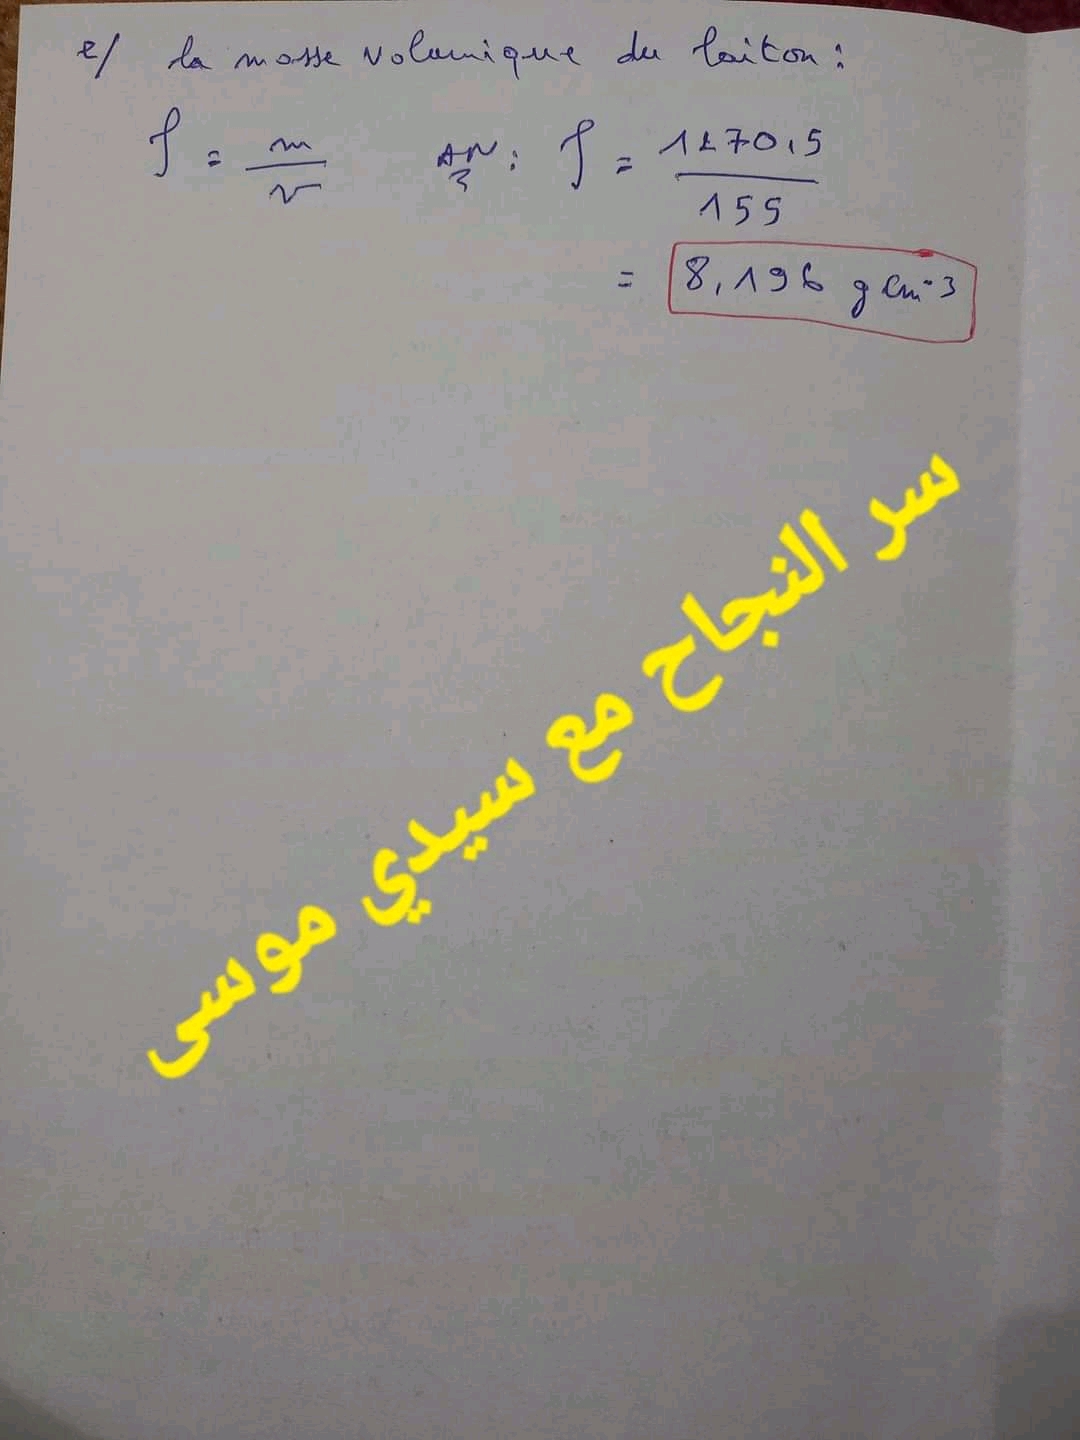 2/ la masse volumique du laiton :
ρ = m/v AN : ρ = 1270,5/155
= 8,196 g cm-3
سر النجاح مع سيدي موسى